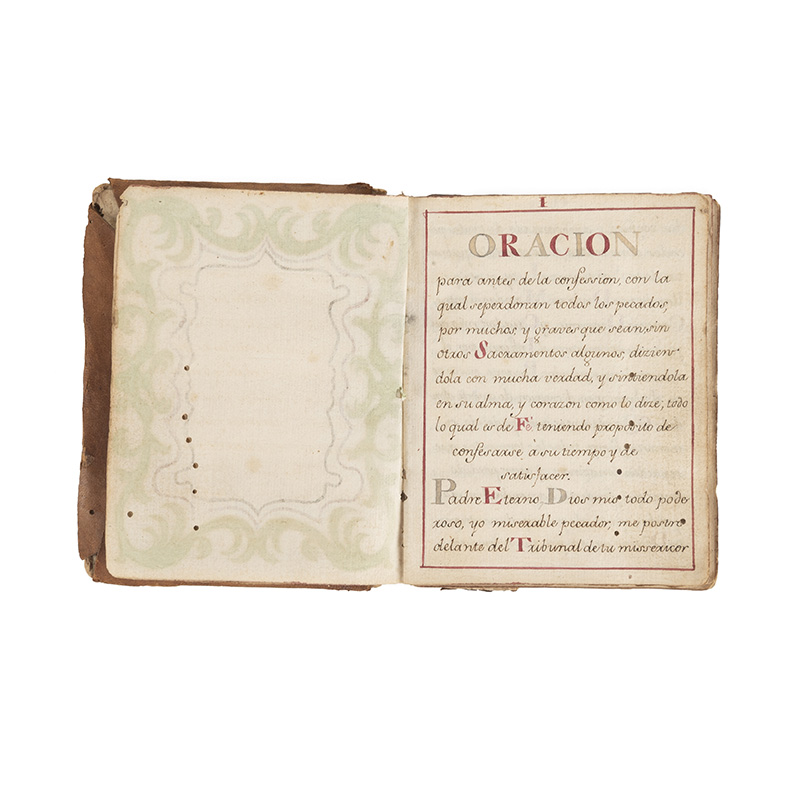 I
ORACION
para antes de la confession, con la
qual seperdonan todos los pecados,
por muchos, y graves que sean, sin
otros Sacramentos algunos, dizien
dola con mucha verdad, y sintiendola
en su alma, y corazon como lo dize; todo
lo qual es de Fè. teniendo proposito de
confesarse à su tiempo y de
satisfacer.
Padre Eterno Dios mio todo pode
roso, yo miserable pecador, me postro
delante del Tribunal de tu missericor